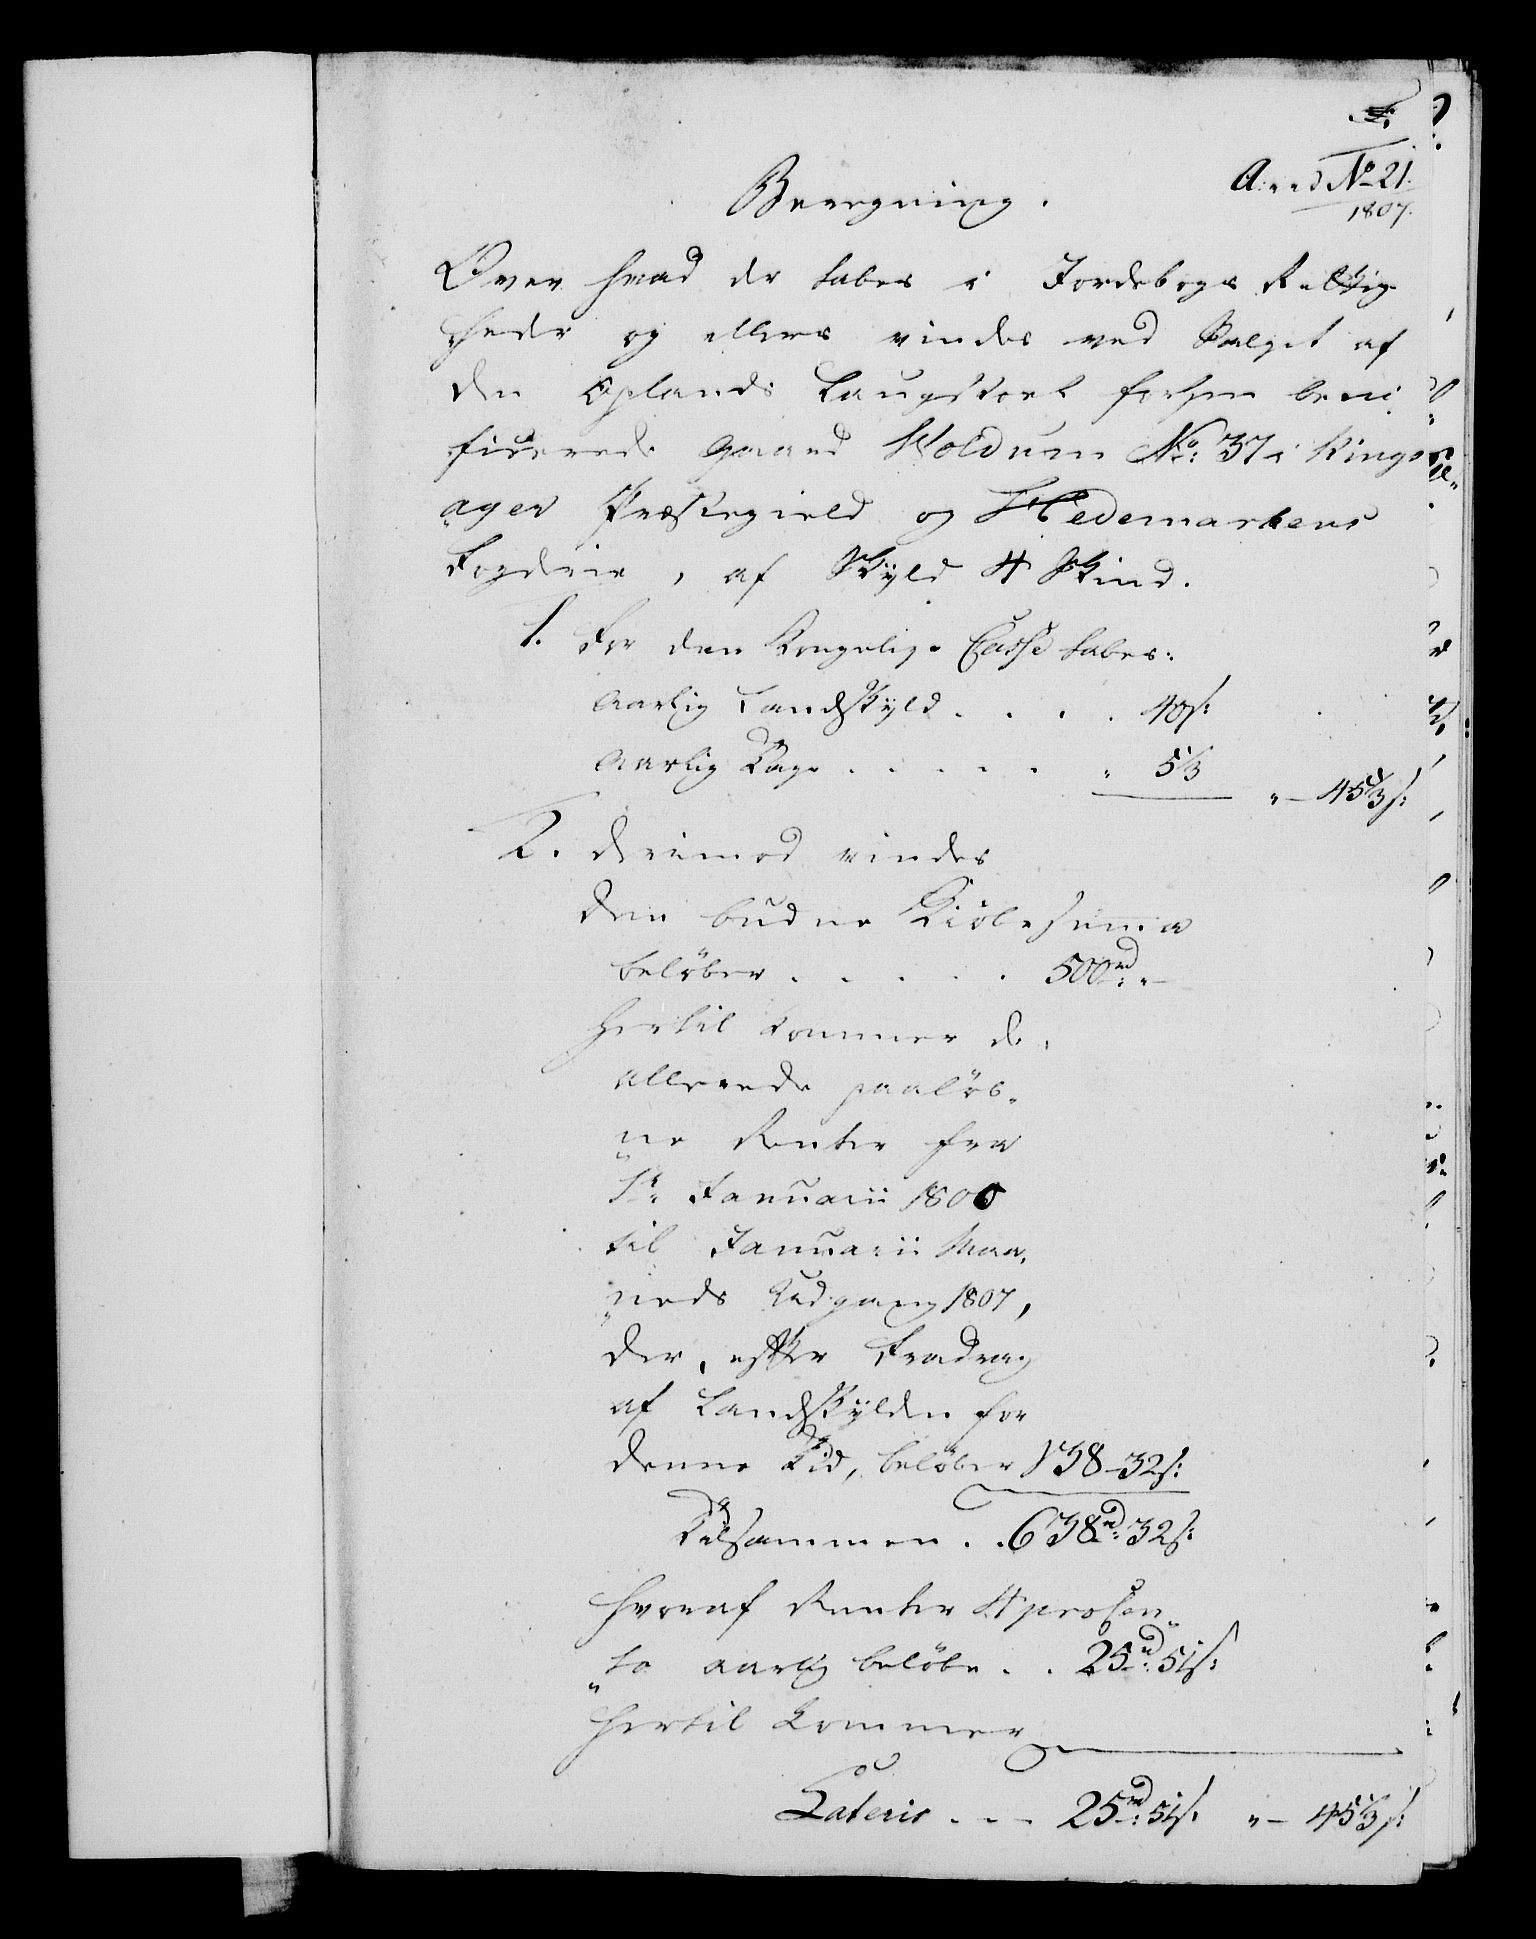 A...d No 21.
1807.
Beregning.
Over hvad der tabes i Jordebogs Rettig
heder og ellers vindes ved Salget af
den Oplands Laugstoel forhen beni
ficerede Gaard Woldum No: 37 i Rings
ager Præstegield og Hedemarkens
Fogderie, af Skyld 4 Skind.
1. For den Kongelige Casse tabes:
Aarlig Landskyld . . . . 40s:
Aarlig Tage . . . . . " 5 1/3
" — 45 1/3 s:
2. derimod vindes
den budne Kiöbesumma
belöber . . . . . 500rd: "—
hertil kommer de
allerede paalöb-
ne Renter fra
1te Januarii 1800
til Januarii Maa-
neds Udgang 1807,
der, efter Fradrag
af Landskylden for
denne Tid, belöber 138-32s:
Tilsammen . . 638rd: 32s:
hvoraf Renter 4 prosen-
to aarlig belöbe . . 25rd: 51s:
hertil kommer
Lateris . . . 25rd: 51s: " — 45 1/3 s: